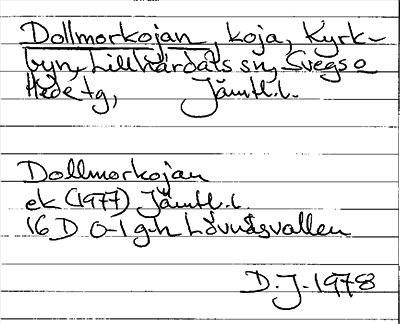 Dollmorkojan, koja, Kyrk-
byn, Lillhärdals sn, Svegs o
Hede tg, Jämtl. l.
Dollmorkojan
ek (1977) Jämtl. l.
16 D 0-1 g-h Lövnäsvallen
D. J. 1978